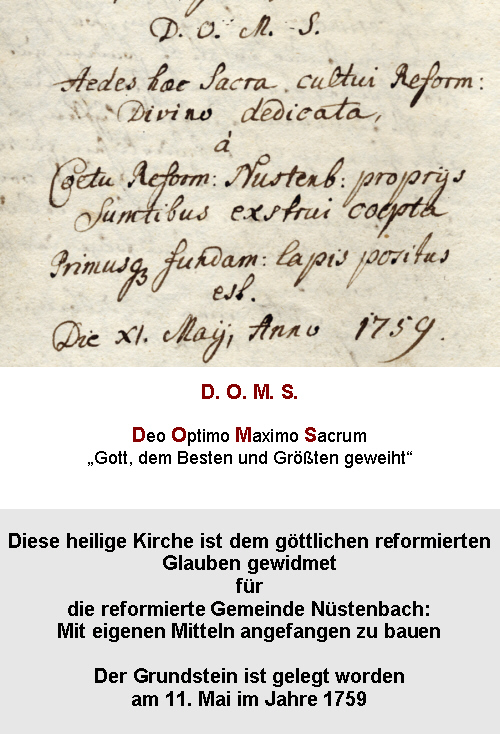 D. O. M. S.
Aedes haec Sacra cultui Reform:
Divino dedicata,
á
Coetu Reform: Nustenb: proprijs
Sumtibus exstrui coepta
Primusq3 fundam: lapis positus
est.
Die XI. Maÿ, Anno 1759.
D. O. M. S.
Deo Optimo Maximo Sacrum
„Gott, dem Besten und Größten geweiht“
Diese heilige Kirche ist dem göttlichen reformierten
Glauben gewidmet
für
die reformierte Gemeinde Nüstenbach:
Mit eigenen Mitteln angefangen zu bauen
Der Grundstein ist gelegt worden
am 11. Mai im Jahre 1759